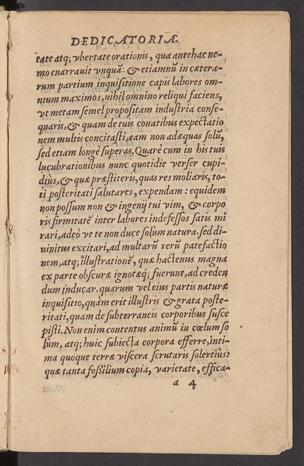 DEDICATORIA.
tate atq; vbertate orationis, qua antehac ne-
mo enarrauit vnquā: & etiamnū in cætera-
rum partium inquisitione capis labores om-
nium maximos, nihil omnino reliqui faciens,
vt metam semel propositam industria conse-
quaris, & quam de tuis conatibus expectatio
nem multis concitasti, eam non adæquas solū,
sed etiam longè superas. Quare cum in his tuis
lucubrationibus nunc quotidie verser cupi-
dius, & quæ præstiteris, quas res moliaris, to-
ti posteritati salutares, expendam: equidem
non possum non & ingenij tui vim, & corpo
ris firmitatē inter labores indefessos satis mi
rari, adeò vt te non duce solùm natura. sed di-
uinitus excitari, ad multarū rerū patefactio
nem, atq; illustrationē, quæ hactenus magna
ex parte obscuræ ignotæq; fuerunt, ad creden
dum inducar. quarum vel eius partis naturæ
inquisitio, quàm erit illustris & grata poste-
ritati, quam de subterraneis corporibus susce
pisti. Non enim contentus animū in cœlum so
lùm, atq; huic subiecta corpora efferre, inti-
ma quoque terræ viscera scrutaris solertius:
quæ tanta fossilium copia, varietate, effica-
a 4